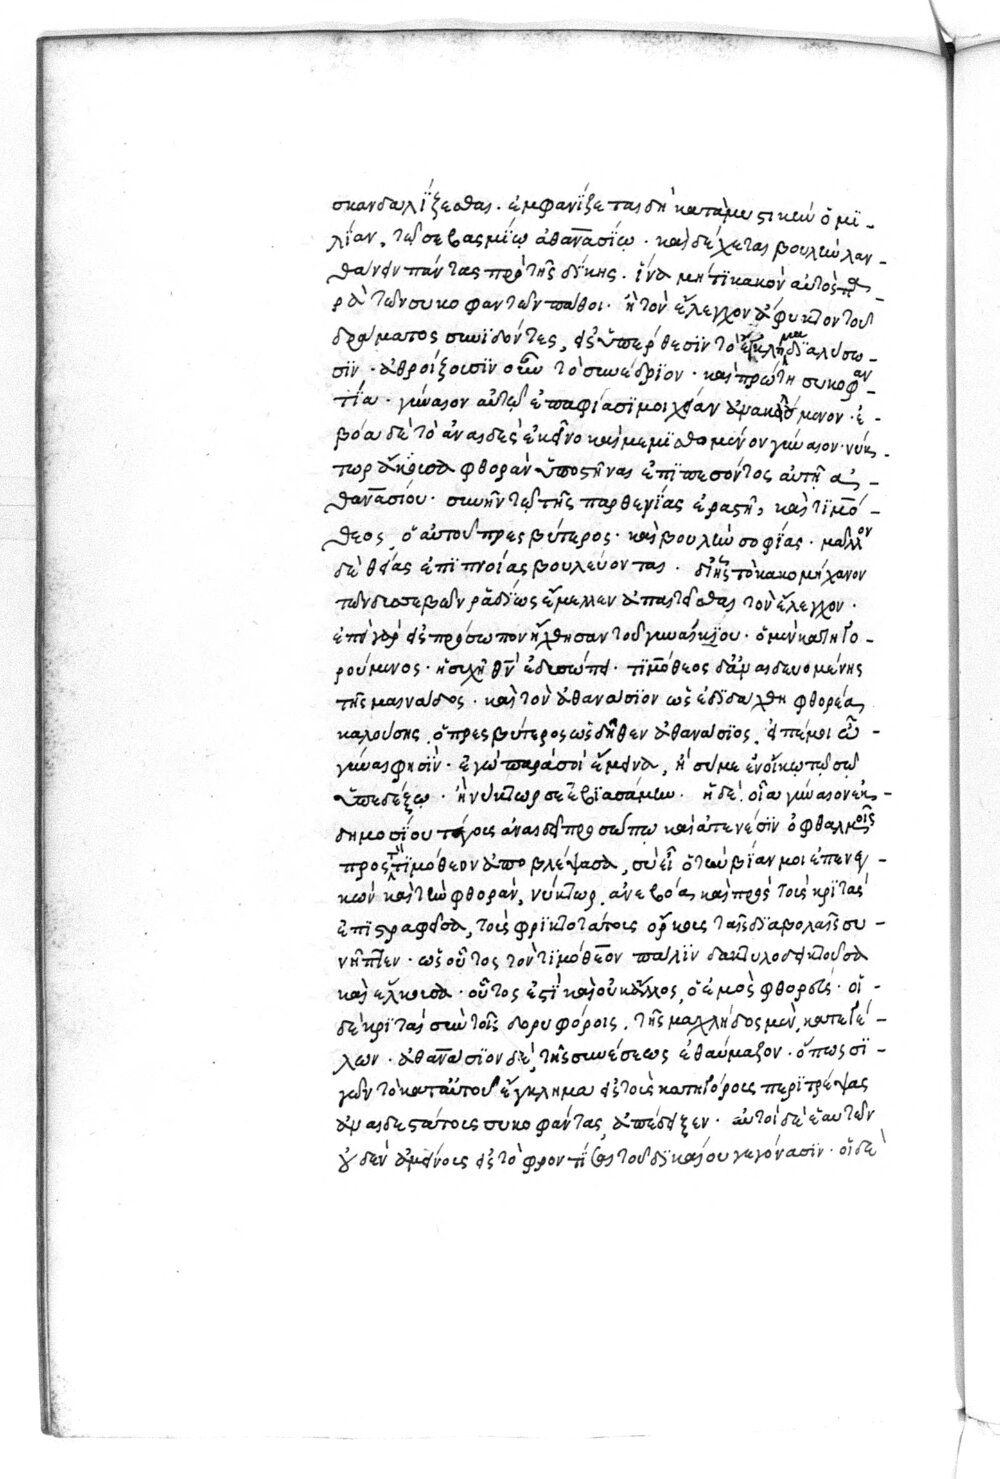 σκανδαλίζεσθαι. ἐμφανίζεται δὴ κατὰ μυστικὴν ὁμι-
λίαν, τῷ σεβασμίῳ ἀθανασίῳ · καὶ δέχεται βουλὴν λαν-
θάνειν πάντας πρὸ τῆς δίκης. ἵνα μήτι κακὸν αὐτὸς πα-
ρὰ τῶν συκοφαντῶν πάθοι · ἢ τὸν ἔλεγχον ἄφυκτον τοῦ
δράματος συνιδόντες, εἰς ὑπέρθεσιν τὸ ἔγκλημα διαλύσω-
σιν · ἀθροίζουσιν οὖν τὸ συνέδριον · καὶ πρώτη συκοφαν-
τία · γύναιον αὐτῷ ἐπαφίασι μοιχείαν
βόα δὲ τὸ ἀναιδὲς ἐκεῖνο καὶ μεμισθωμένον γύναιον · νύκ-
τωρ ἄκουσα φθορὰν ὑποστῆναι ἐπιπεσόντος αὐτῇ ἀ-
θανασίου · συνῆν τῷ τῆς παρθενίας ἐραστῇ, καὶ τιμό-
θεος, ὁ αὐτοῦ πρεσβύτερος · καὶ βουλὴν σοφίας · μᾶλλον
δὲ θείας ἐπιπνοίας βουλεύονται · δι' ἧς τὸ κακομήχανον
τῶν δυσσεβῶν ῥᾳδίως ἔμελλεν ἀπατᾶσθαι τὸν ἔλεγχον ·
ἐπεὶ γὰρ εἰς πρόσωπον ἤχθησαν τοῦ γυναικίου · ὁ μὲν κατηγο-
ρούμενος · ἡσυχῇ ἐδυσώπει · τιμόθεος δ' ἀναιδευομένης
τῆς μαινάδος · καὶ τὸν ἀθανάσιον ὡς ἐδιδάχθη φθορέα
καλούσης, ὁ πρεσβύτερος ὡς δῆθεν ἀθανάσιος, εἰπέ μοι ὦ
γύναι φησίν · ἐγὼ παρὰ σοὶ ἔμεινα, ἢ σύ με ἐν οἴκῳ τῷ σῷ
ὑπεδέξω · ἢ νύκτωρ σε ἐβιασάμην · ἡ δὲ οἷα γύναιον ἐκ
δημοσίου τέγους ἀναιδεῖ προσώπῳ καὶ ἀτενέσιν ὀφθαλμοῖς
πρὸς τιμόθεον ἀποβλέψασα, σὺ εἶ ὁ τὴν βίαν μοι ἐπενεγ-
κὼν καὶ τὴν φθοράν, νύκτωρ, ἀνεβόα καὶ πρὸς τοὺς κριτὰς
ἐπιστραφεῖσα, τοὺς φρικτοτάτους ὅρκους ταῖς διαβολαῖς συ-
νῆπτεν · ὡς οὗτος τὸν τιμόθεον πάλιν δακτυλοδεικτοῦσα
καὶ ἕλκουσα · οὗτος ἐστὶ καὶ οὐκ ἄλλος, ὁ ἐμὸς φθορεύς · οἱ
δὲ κριταὶ σὺν τοῖς δορυφόροις, τῆς μαχλάδος μὲν, κατεγέ-
λων · ἀθανάσιον δὲ, τῆς συνέσεως ἐθαύμαζον · ὅπως σι-
γῶν τὸ κατ' αὐτοῦ ἔγκλημα εἰς τοὺς κατηγόρους περιτρέψας
ἀναιδεστάτους συκοφάντας, ἀπέδειξεν · αὐτοὶ δὲ ἑαυτῶν
οὐδὲν ἀμείνους εἰς τὸ φροντίσαι τοῦ δικαίου γεγόνασιν · οἱ δὲ